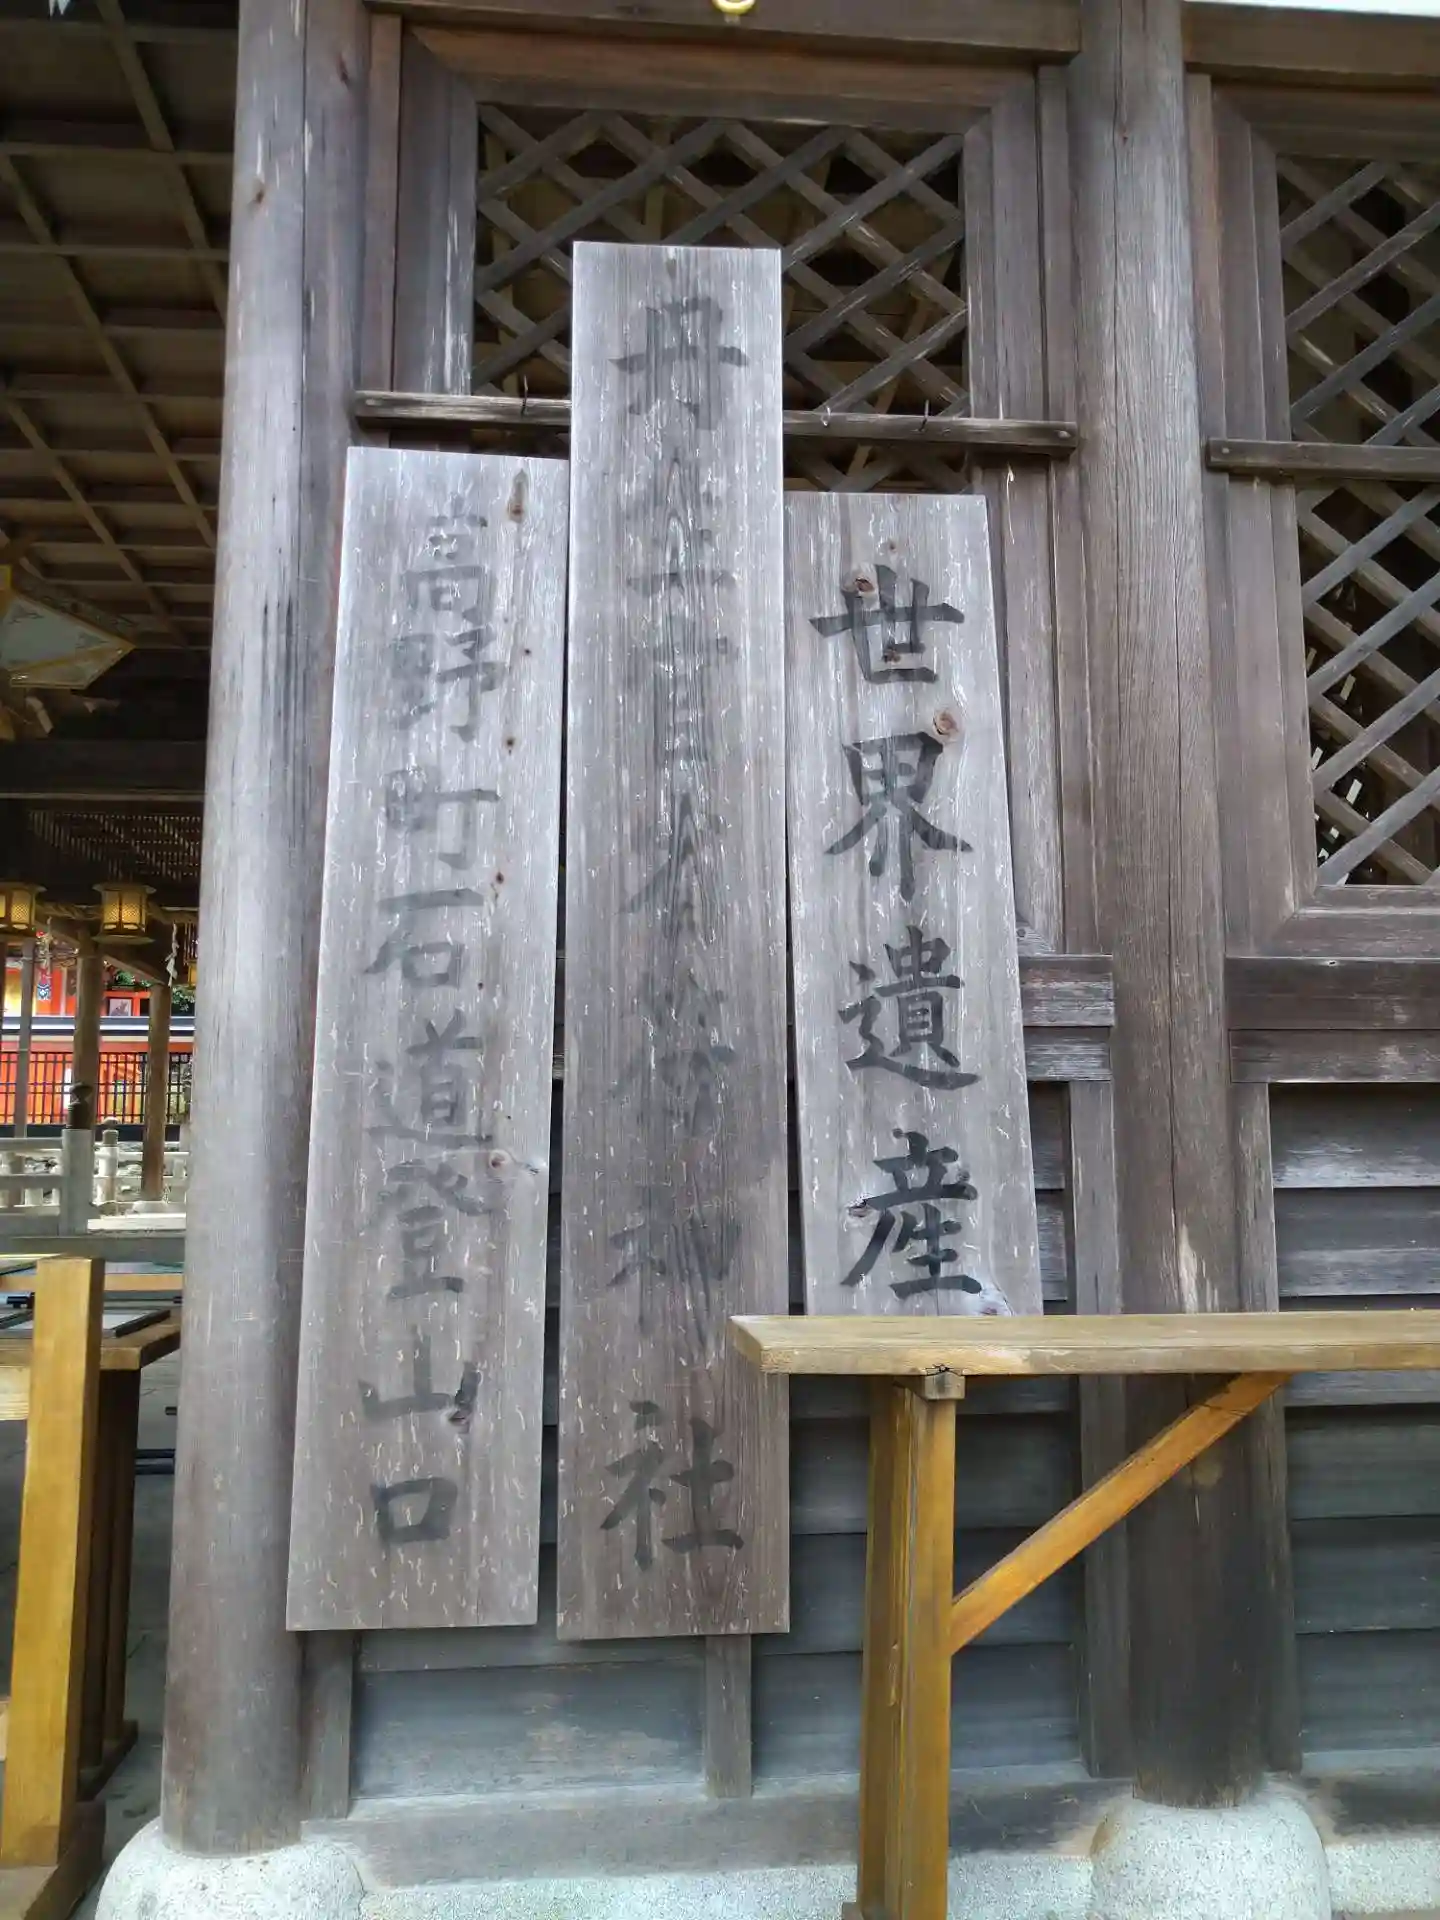 世界遺産
丹生官省符神社
高野町石道登山口